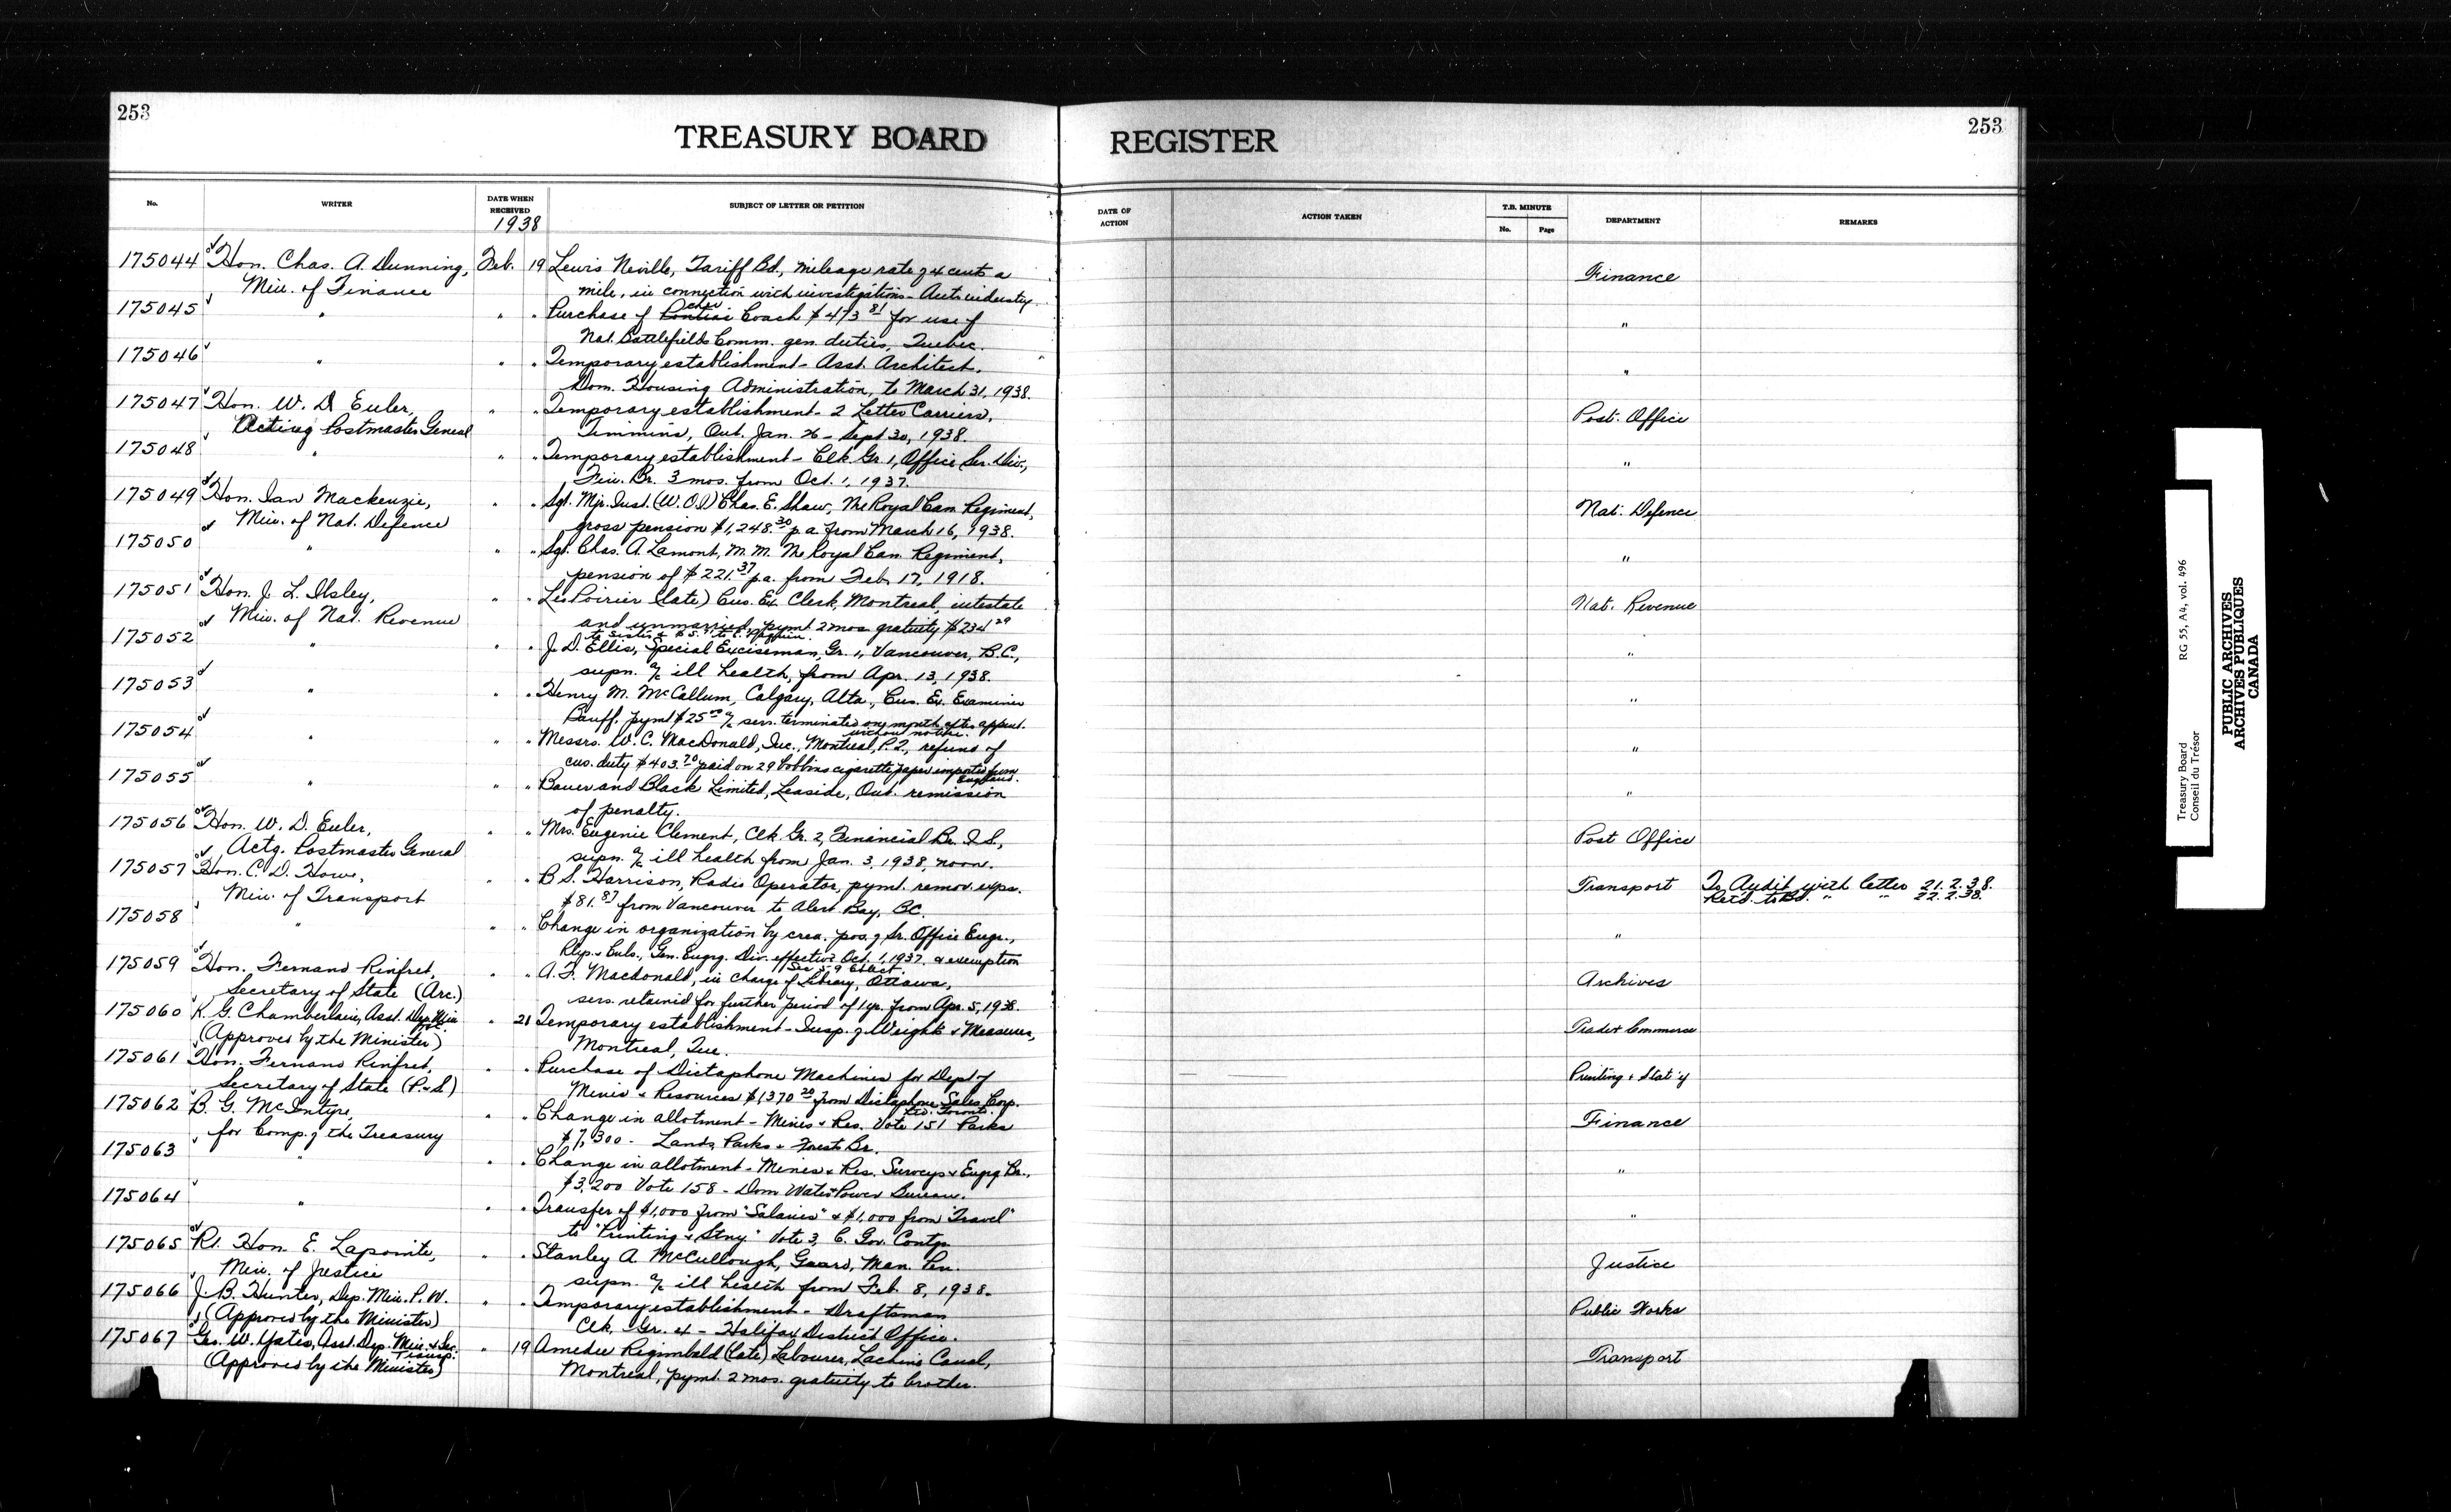 253
253
TREASURY BOARD REGISTER
No.
WRITER
DATE WHEN RECEIVED
1938
SUBJECT OF LETTER OR PETITION
DATE OF ACTION
ACTION TAKEN
T.B. MINUTE
No.
Page
DEPARTMENT
REMARKS
175044 Hon. Chas. A. Dunning, Feb. 19 Lewis Neville, Tariff Bd., mileage rate of 4 cents a Finance
Min. of Finance mile, in connection with investigations - Auto industry.
175045 " " " Purchase of Pontiac Chev Coach $473.81 for use of "
Nat. Battlefields Comm. gen. duties, Quebec.
175046 " " " Temporary establishment - Asst. Architect, "
Dom. Housing Administration, to March 31, 1938.
175047 Hon. W. D Euler, " " Temporary establishment - 2 Letter Carriers, Post. Office
Acting Postmaster General Timmins, Ont. Jan. 26 - Sept 30, 1938.
175048 " " " Temporary establishment - Clk. Gr 1, Office Ser. Div., "
Fin. Br. 3 mos. from Oct. 1, 1937.
175049 Hon. Ian Mackenzie, " " Sgt. Mjr. Inst. (W.O.I) Chas. E. Shaw, The Royal Can. Regiment, Nat. Defence
Min. of Nat. Defence gross pension $1,248.30 p.a. from March 16, 1938.
175050 " " " Sgt. Chas. A. Lamont, M.M. The Royal Can. Regiment, "
pension of $221.37 p.a. from Feb. 17, 1918.
175051 Hon. J. L. Ilsley, " " Poirier (late) Cus. Ex. Clerk, Montreal, intestate Nat. Revenue
Min. of Nat. Revenue and unmarried, pymt. 2 mos. gratuity $234.29
to sister &
175052 " " " J. D. Ellis, Special Exciseman, Gr. 1, Vancouver, B.C., "
supn. a/c ill health, from Apr. 13, 1938.
175053 " " " Henry M. McCallum, Calgary, Alta., Cus. Ex. Examiner "
Banff, pymt $25.00 a/c serv. terminated one month after appmt.
without notice.
175054 " " " Messrs. W. C. MacDonald, Inc., Montreal, P.Q., refund of "
cus. duty $403.70 paid on 29 bobbins cigarette paper imported from
England.
175055 " " " Bauer and Black Limited, Leaside, Ont. remission "
of penalty.
175056 Hon. W. D. Euler, " " Mrs. Eugenie Clement, Clk. Gr. 2, Financial Br. I.S., Post Office
Actg. Postmaster General supn. a/c ill health from Jan. 3, 1938, noon.
175057 Hon. C. D. Howe, " " B S. Harrison, Radio Operator, pymt. remov. exps. Transport To Audit with letter 21.2.38.
Min. of Transport $81.87 from Vancouver to Alert Bay, BC. Retd. to Bd. " " 22.2.38.
175058 " " " Change in organization by crea. pos. of Sr. Office Engr., "
Rlys. & Cnls., Gen. Engrg. Div. effective Oct. 1, 1937. & exemption
Sec 5.9 Est. Act.
175059 Hon. Fernand Rinfret, " " A. F. Macdonald, in charge of Library, Ottawa, Archives
Secretary of State (Arc.) serv. retained for further period of 1 yr. from Apr. 5, 1938.
175060 K. G. Chamberlain, Asst. Dep. Min. " 21 Temporary establishment - Insp. of Weights & Measures, Trade & Commerce
(Approved by the Minister) Montreal, Que.
175061 Hon. Fernand Rinfret, " " Purchase of Dictaphone Machines for Dept of Printing & Stat'y
Secretary of State (P. & S.) Mines & Resources $1,370.20 from Dictaphone Sales Corp.
Ltd. Toronto.
175062 B. G. McIntyre, " " Change in allotment - Mines & Res. Vote 151 Parks Finance
for Comp. of the Treasury $7,300 - Lands, Parks & Forest Br.
175063 " " " Change in allotment - Mines & Res. Surveys & Engrg Br., "
$3,200 Vote 158 - Dom Water Power Bureau.
175064 " " " Transfer of $1,000 from "Salaries" & $1,000 from "Travel" "
to "Printing & Stny." Vote 3, C. Gov. Contgs.
175065 Rt. Hon. E. Lapointe, " " Stanley A. McCullough, Guard, Man. Pen. Justice
Min. of Justice supn. a/c ill health from Feb. 8, 1938.
175066 J. B. Hunter, Dep. Min. P. W. " " Temporary establishment - Draftsman Public Works
(Approved by the Minister) Clk. Gr. 4 - Halifax District Office.
175067 Geo. W. Yates, Asst. Dep. Min. & Sec. Transp. " 19 Amedee Regimbald (Late) Labourer, Lachine Canal, Transport
(Approved by the Minister) Montreal, pymt. 2 mos. gratuity to brother.
Treasury Board RG 55, A4, vol. 496
Conseil du Trésor
PUBLIC ARCHIVES
ARCHIVES PUBLIQUES
CANADA